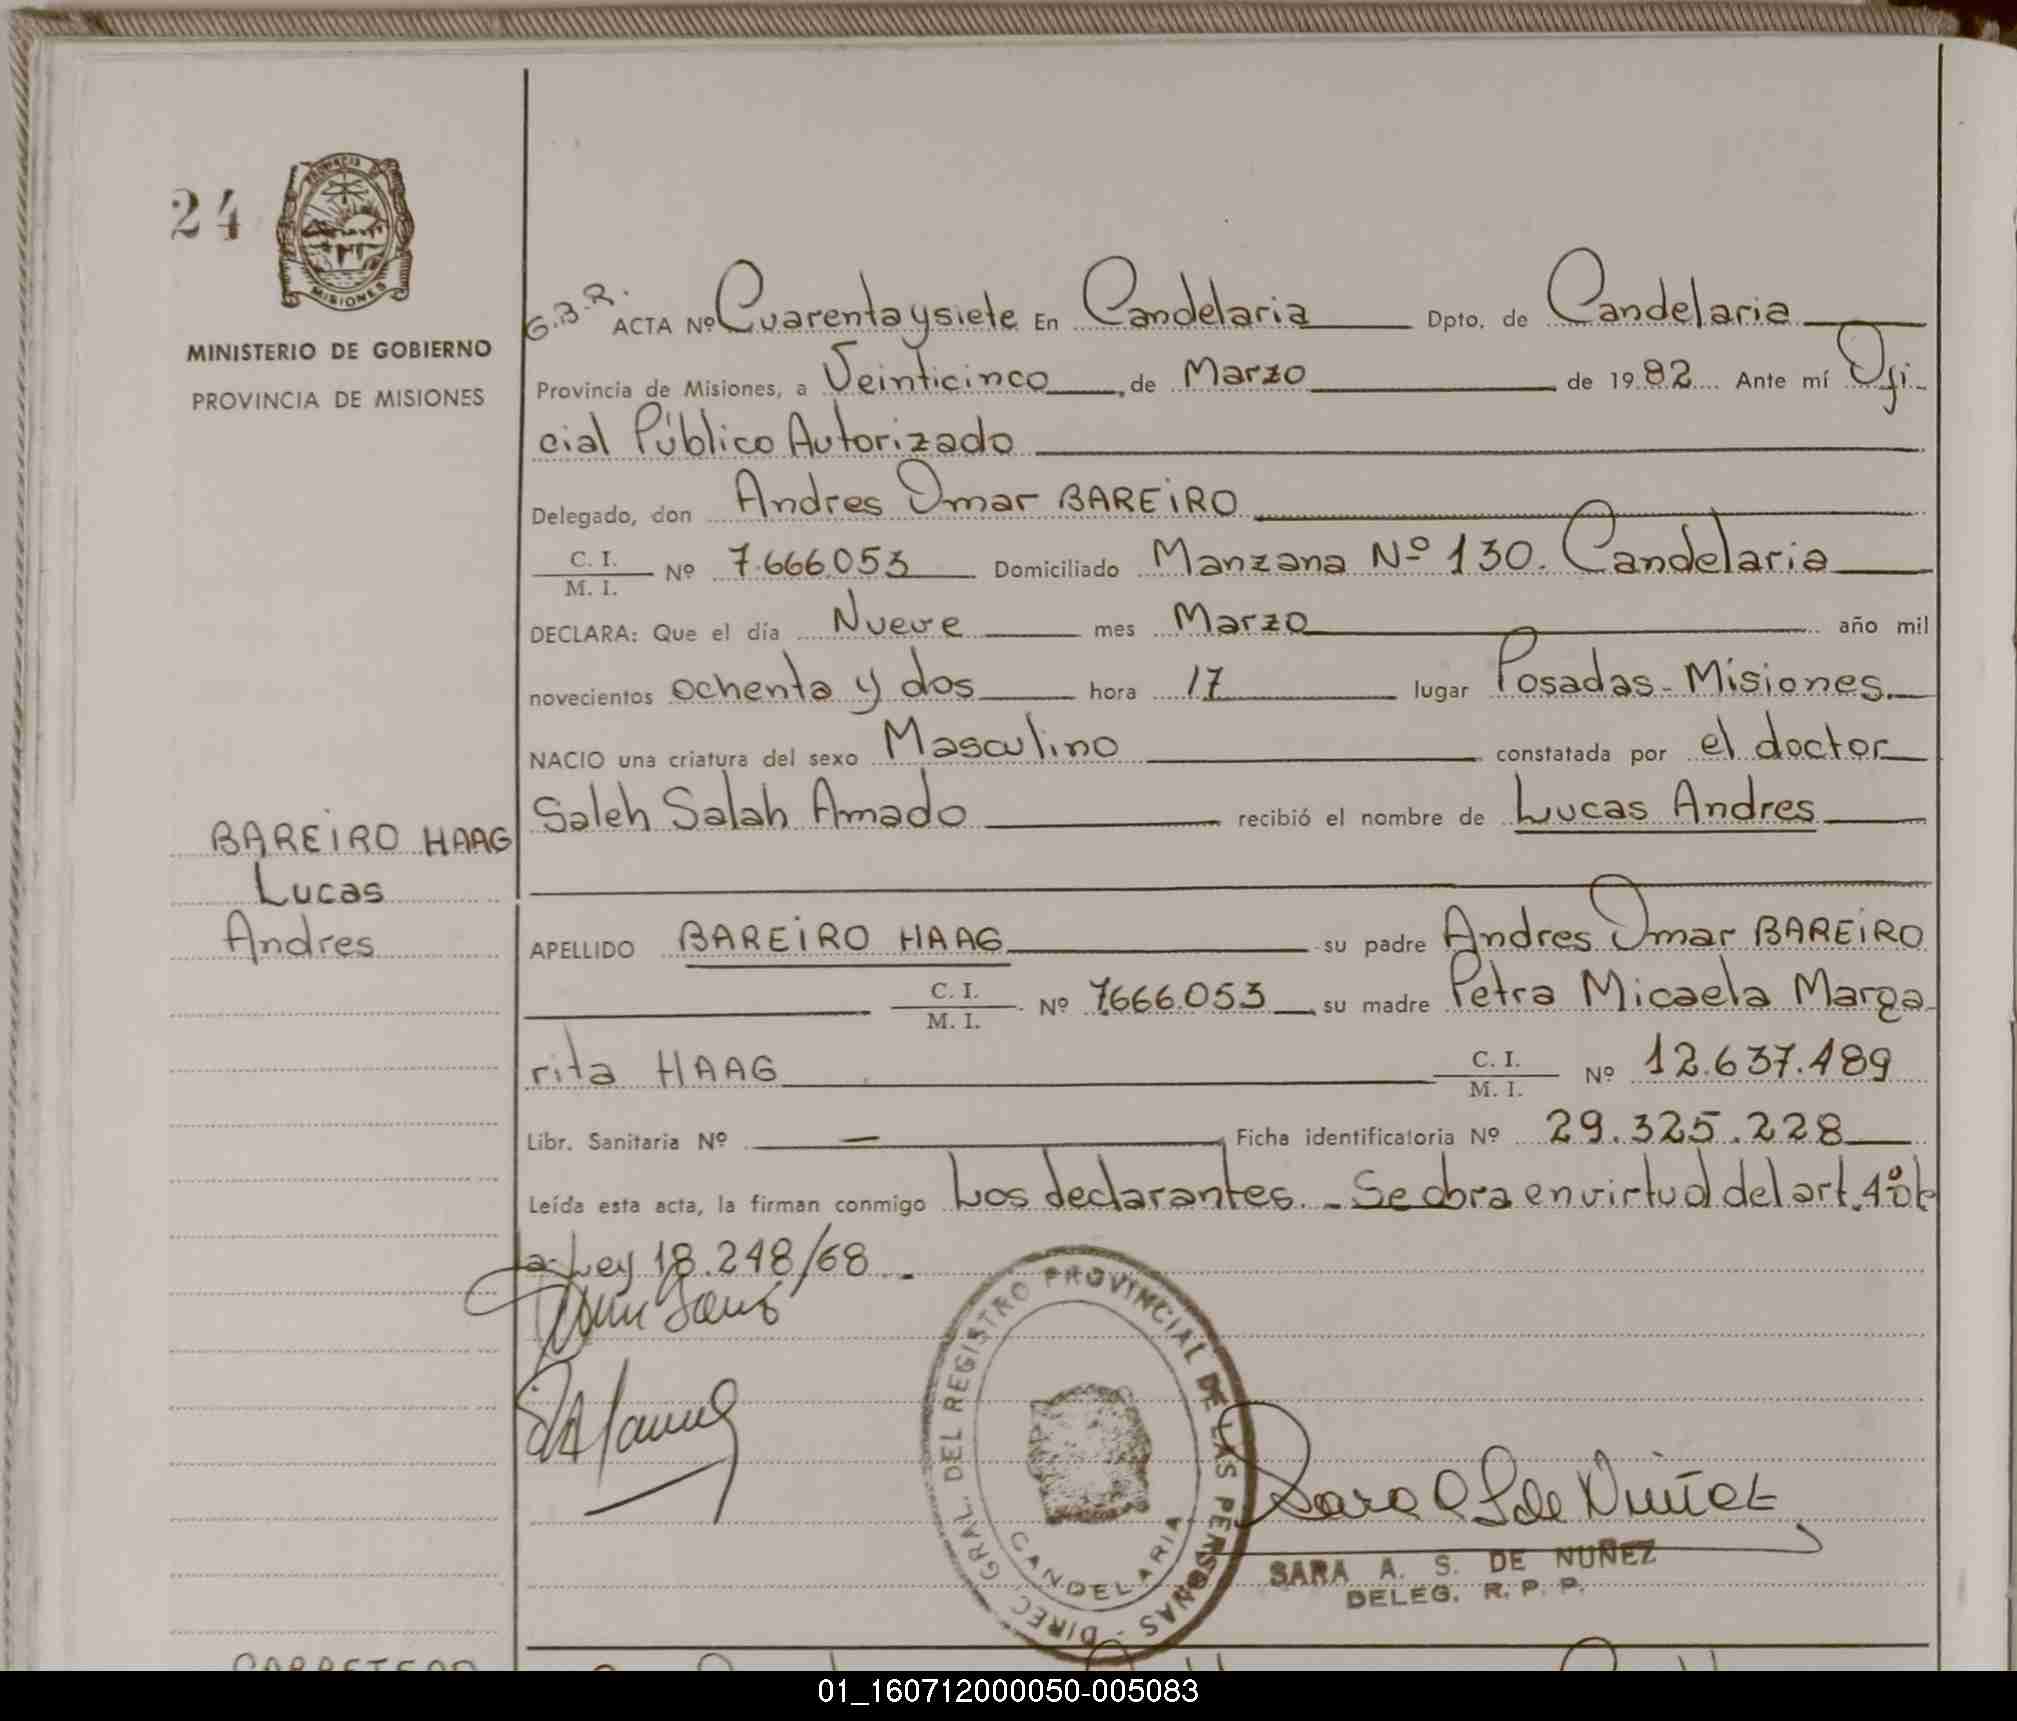 24
PROVINCIA DE
MISIONES
MINISTERIO DE GOBIERNO
PROVINCIA DE MISIONES
G.B.R. ACTA Nº Cuarenta y siete En Candelaria Dpto. de Candelaria
Provincia de Misiones, a Veinticinco, de Marzo de 1982 Ante mí Ofi-
cial Público Autorizado
Delegado, don Andres Omar BAREIRO
C. I.
M. I. Nº 7.666.053 Domiciliado Manzana Nº 130. Candelaria
DECLARA: Que el día Nueve mes Marzo año mil
novecientos ochenta y dos hora 17 lugar Posadas - Misiones.
NACIO una criatura del sexo Masculino constatada por el doctor
Saleh Salah Amado recibió el nombre de Lucas Andres
BAREIRO HAAG
Lucas
Andres
APELLIDO BAREIRO HAAG su padre Andres Omar BAREIRO
C. I.
M. I. Nº 7.666.053, su madre Petra Micaela Marga-
rita HAAG C. I.
M. I. Nº 12.637.489
Libr. Sanitaria Nº — Ficha identificatoria Nº 29.325.228
Leída esta acta, la firman conmigo Los declarantes. - Se obra en virtud del art. 4º de
la Ley 18.248/68. -
DIREC. GRAL. DEL REGISTRO PROVINCIAL DE LAS PERSONAS -
CANDELARIA
Sara A S de Nuñez
SARA A. S. DE NUÑEZ
DELEG. R. P. P.
01_160712000050-005083